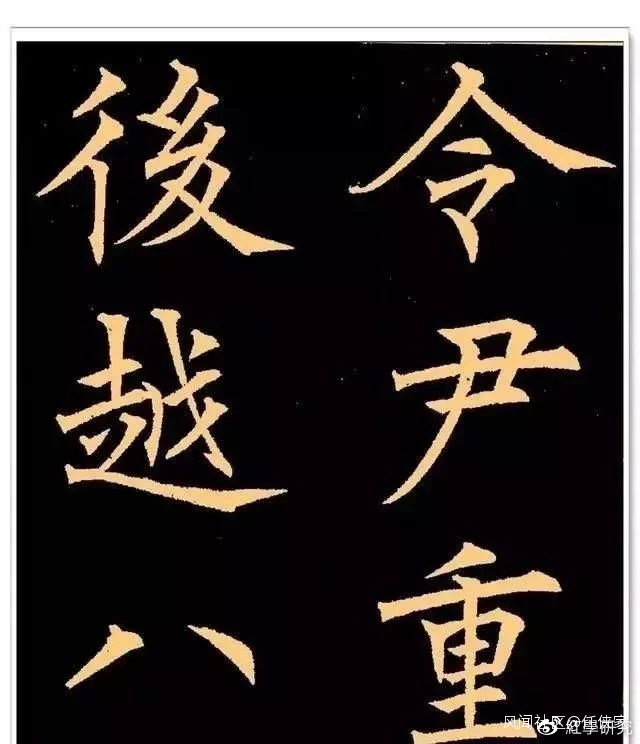 令尹重
後越八
风闻社区@任侠家
紅學研究